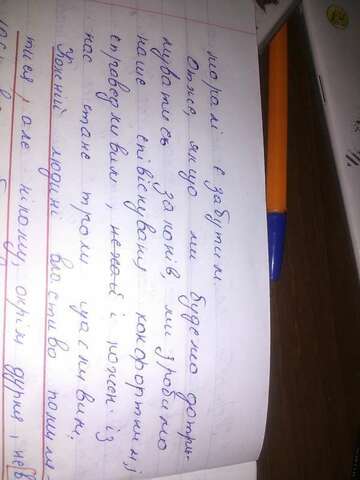 моралі є забутим.
Отже, якщо ми будемо дотри-
муватись законів, ми зробимо
наше співіснування комфортним,
справедливим, нехай і кожен із
нас стане трохи щасливим.
Кожній людині властиво помиля-
тися, але нікому, окрім дурня, нев